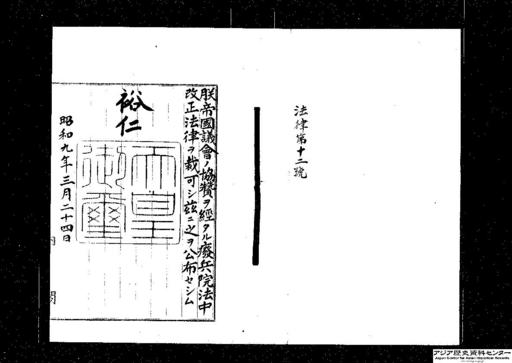 法律第十二號
朕帝國議會ノ協贊ヲ經タル癈兵院法中
改正法律ヲ裁可シ玆ニ之ヲ公布セシム
裕仁
天皇
御璽
昭和九年三月二十四日
アジア歴史資料センター
Japan Center for Asian Historical Records